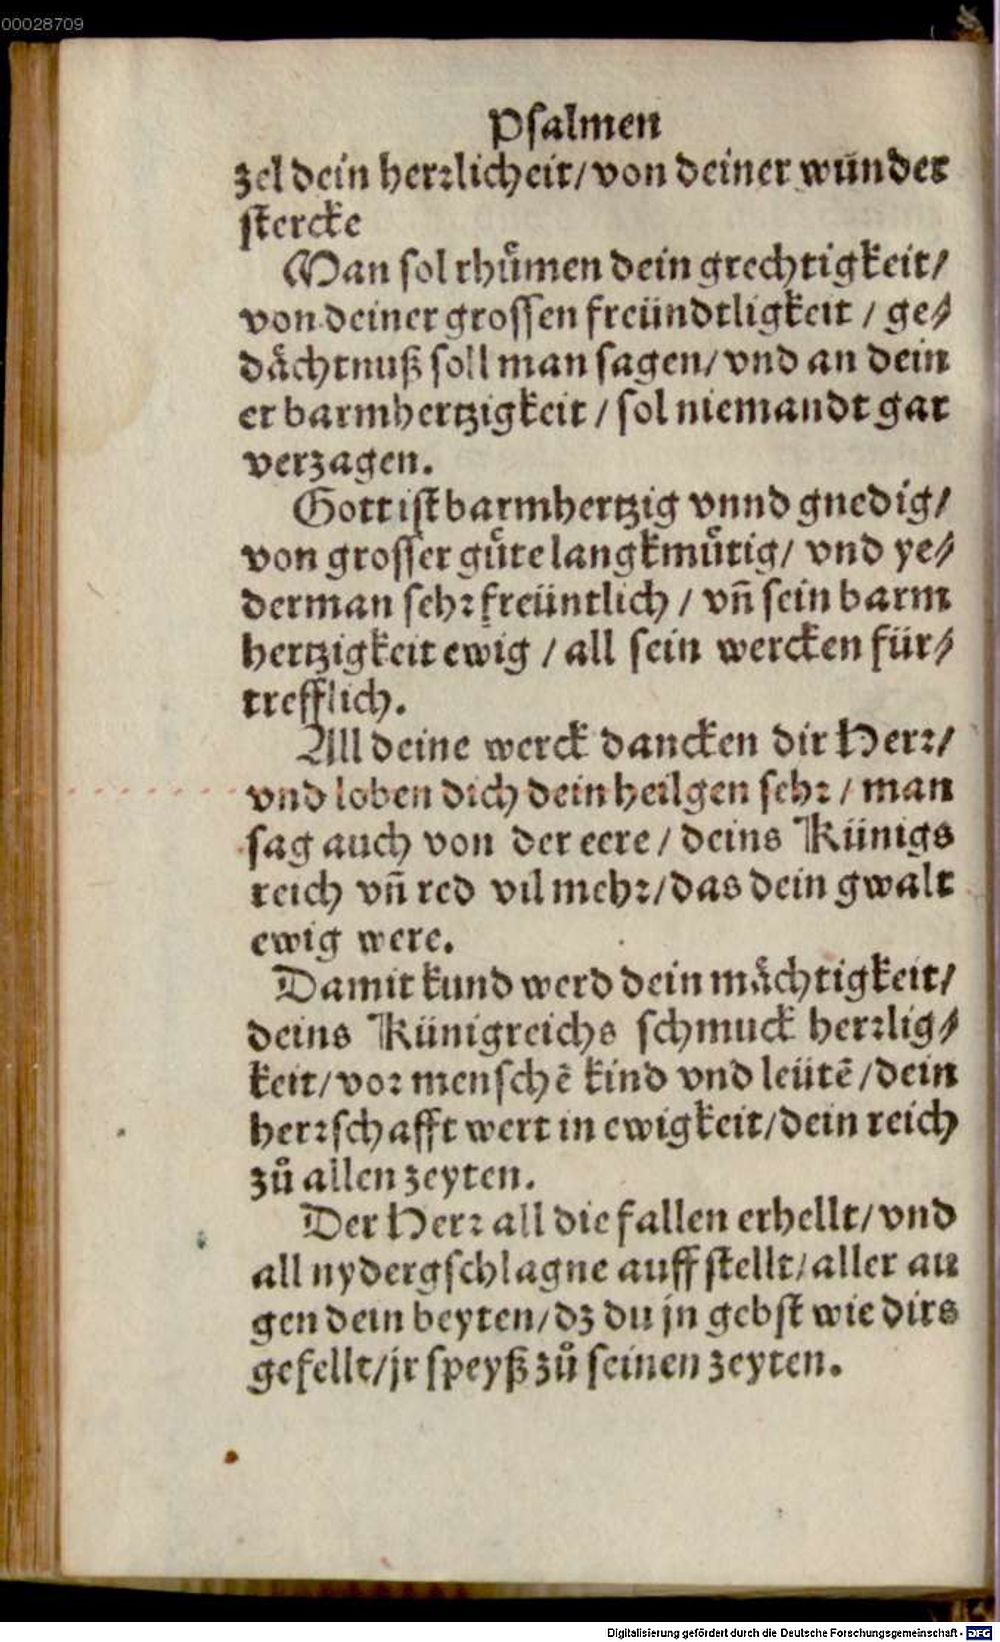 00028709
Psalmen
zel dein herrlicheit/ von deiner wunder
stercke
Man sol rhuͤmen dein grechtigkeit/
von deiner grossen freündtligkeit / ge⸗
daͤchtnuß soll man sagen/ vnd an dein
er barmhertzigkeit / sol niemandt gar
verzagen.
Gott ist barmhertzig vnnd gnedig/
von grosser guͤte langkmuͤtig/ vnd ye⸗
derman sehr freüntlich / vñ sein barm
hertzigkeit ewig / all sein wercken für⸗
trefflich.
All deine werck dancken dir Herr/
vnd loben dich dein heilgen sehr / man
sag auch von der eere / deins Künigs
reich vñ red vil mehr/ das dein gwalt
ewig were.
Damit kund werd dein maͤchtigkeit/
deins Künigreichs schmuck herrlig⸗
keit/ vor menschẽ kind vnd leütẽ / dein
herrschafft wert in ewigkeit/ dein reich
zuͦ allen zeyten.
Der Herr all die fallen erhellt/ vnd
all nydergschlagne auff stellt/ aller au
gen dein beyten/ dz du jn gebst wie dirs
gefellt/ jr speyß zuͦ seinen zeyten.
Digitalisierung gefördert durch die Deutsche Forschungsgemeinschaft - DFG